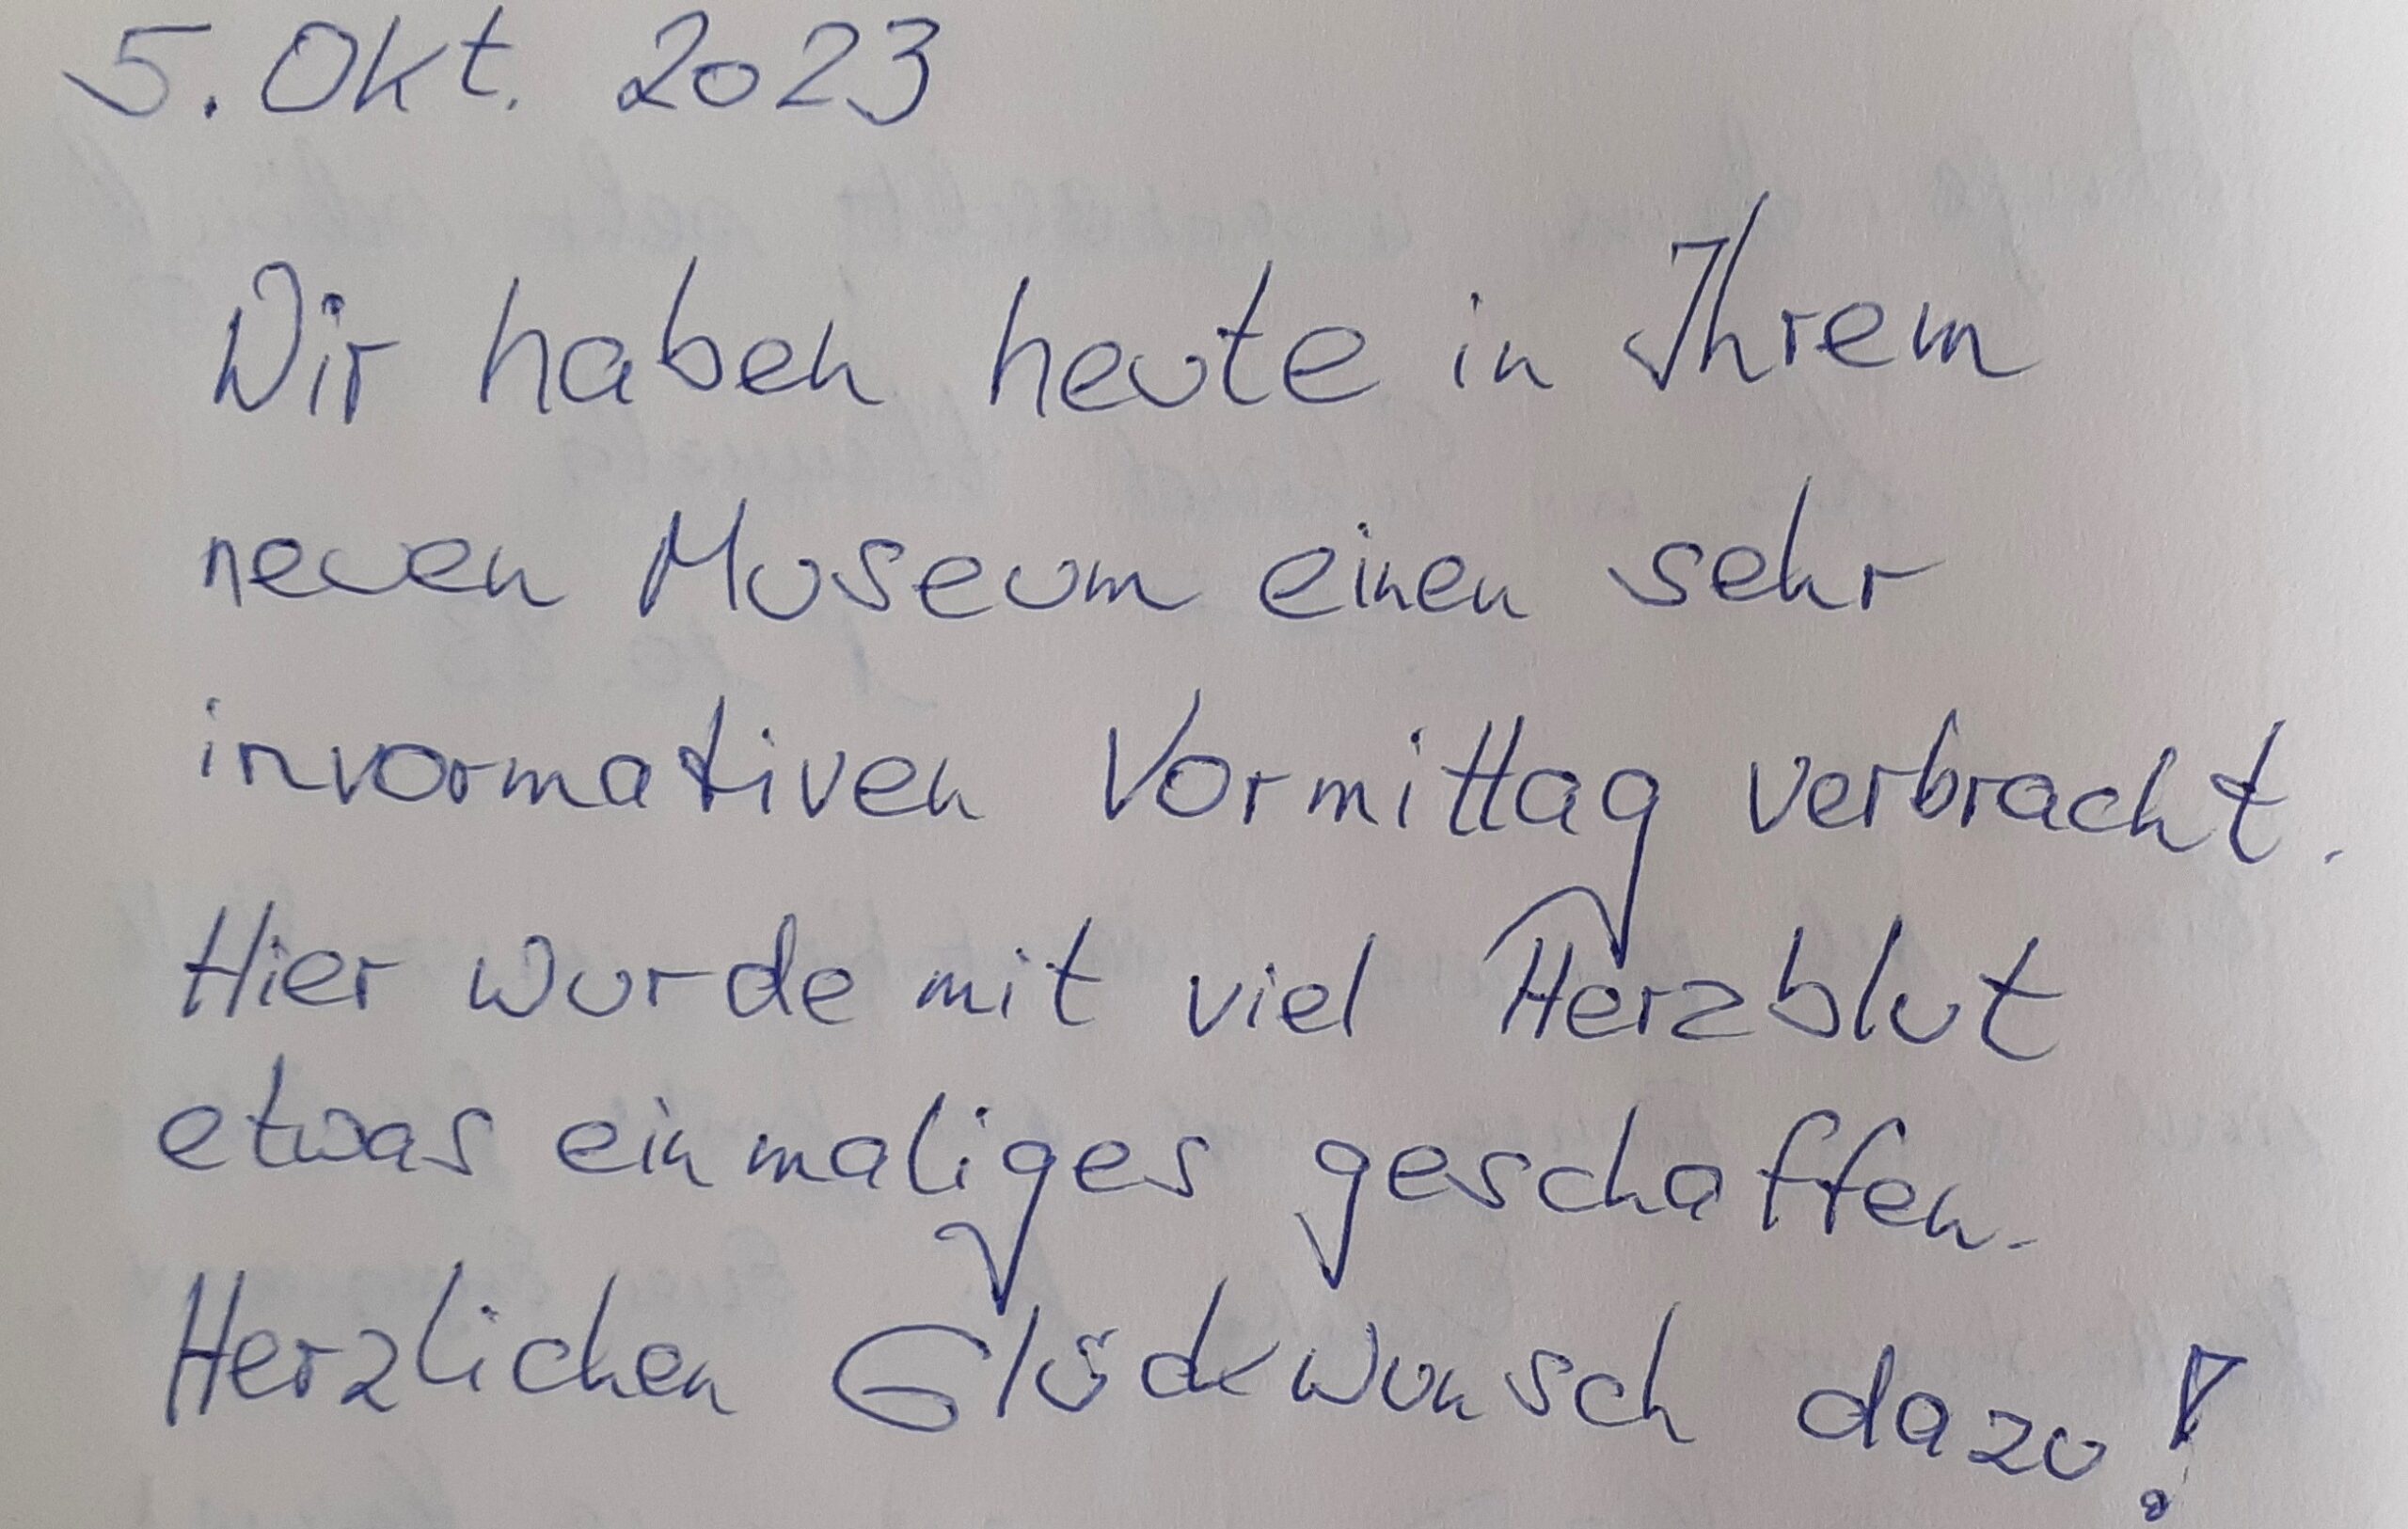 5. Okt. 2023
Wir haben heute in Ihrem
neuen Museum einen sehr
invormativen Vormittag verbracht.
Hier wurde mit viel Herzblut
etwas einmaliges geschaffen.
Herzlichen Glückwunsch dazu!